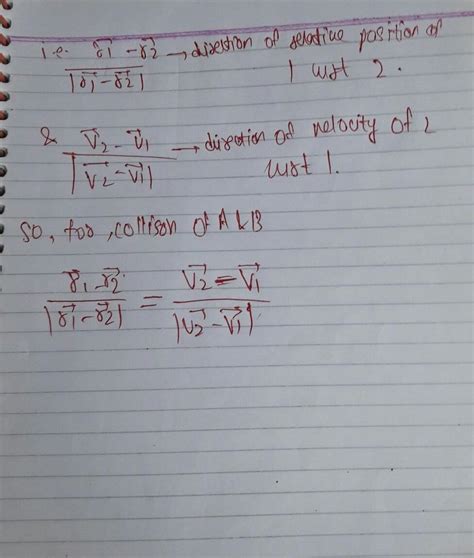 i.e. (r⃗1 - r⃗2) / |r⃗1 - r⃗2| → direction of relative position of
1 wrt 2.
& (V⃗2 - V⃗1) / |V⃗2 - V⃗1| → direction of velocity of 2
wrt 1.
So, for, collison of A & B
(r⃗1 - r⃗2) / |r⃗1 - r⃗2| = (V⃗2 - V⃗1) / |V⃗2 - V⃗1|